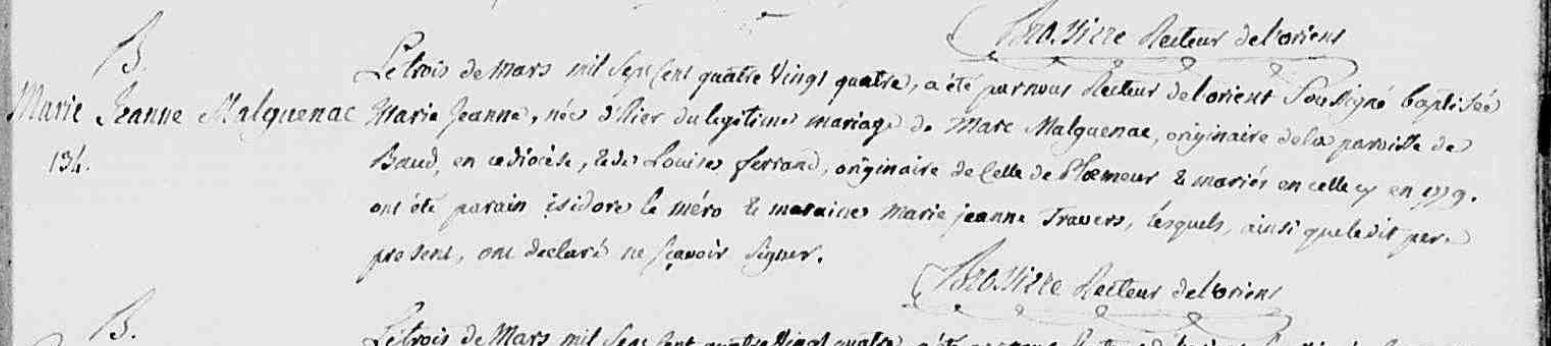 Brossierre Recteur de l'orient
B.
Marie Jeanne Malguenac
134.
Le trois de Mars mil Sept Cent quatre Vingt quatre, a été par nous Recteur de l'orient Soussigné baptisée
Marie Jeanne, née d'hier du legitime mariage de Marc Malguenac, originaire de la paroisse de
Baud, en ce diocèse, & de Louise ferrand, originaire de Celle de Ploemeur & mariés en celle cy en 1779.
ont été parain isidore le méro & maraine Marie jeanne Travers, lesquels, ainsi que le dit pere
present, ont declaré ne sçavoir Signer.
Brossierre Recteur de l'orient
B.
Le trois de Mars mil Sept Cent quatre Vingt quatre, a été